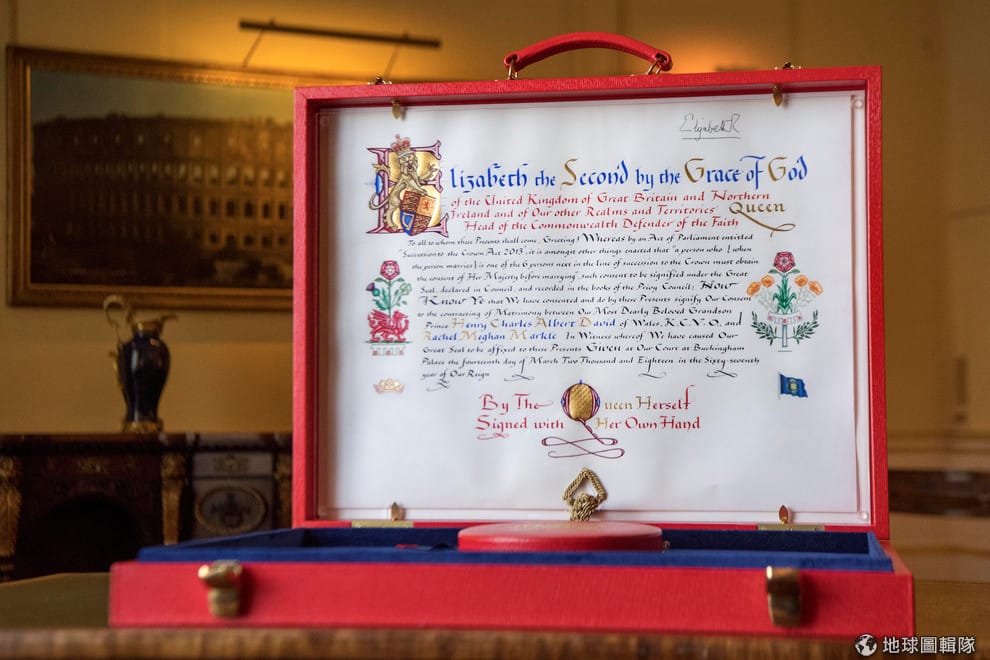 Elizabeth R
Elizabeth the Second by the Grace of God
of the United Kingdom of Great Britain and Northern
Ireland and of Our other Realms and Territories Queen
Head of the Commonwealth Defender of the Faith
To all to whom these Presents shall come, Greeting! Whereas by an Act of Parliament entitled
"Succession to the Crown Act 2013", it is amongst other things enacted that "a person who (when
the person marries) is one of the 6 persons next in the line of succession to the Crown must obtain
the consent of Her Majesty before marrying" such consent to be signified under the Great
Seal, declared in Council, and recorded in the books of the Privy Council; Now
Know Ye that We have consented and do by these Presents signify Our Consent
to the contracting of Matrimony between Our Most Dearly Beloved Grandson
Prince Henry Charles Albert David of Wales, K.C.V.O., and
Rachel Meghan Markle In Witness whereof We have caused Our
Great Seal to be affixed to these Presents Given at Our Court at Buckingham
Palace the fourteenth day of March Two Thousand and Eighteen in the Sixty-seventh
year of Our Reign
By The Queen Herself
Signed with Her Own Hand
地球圖輯隊